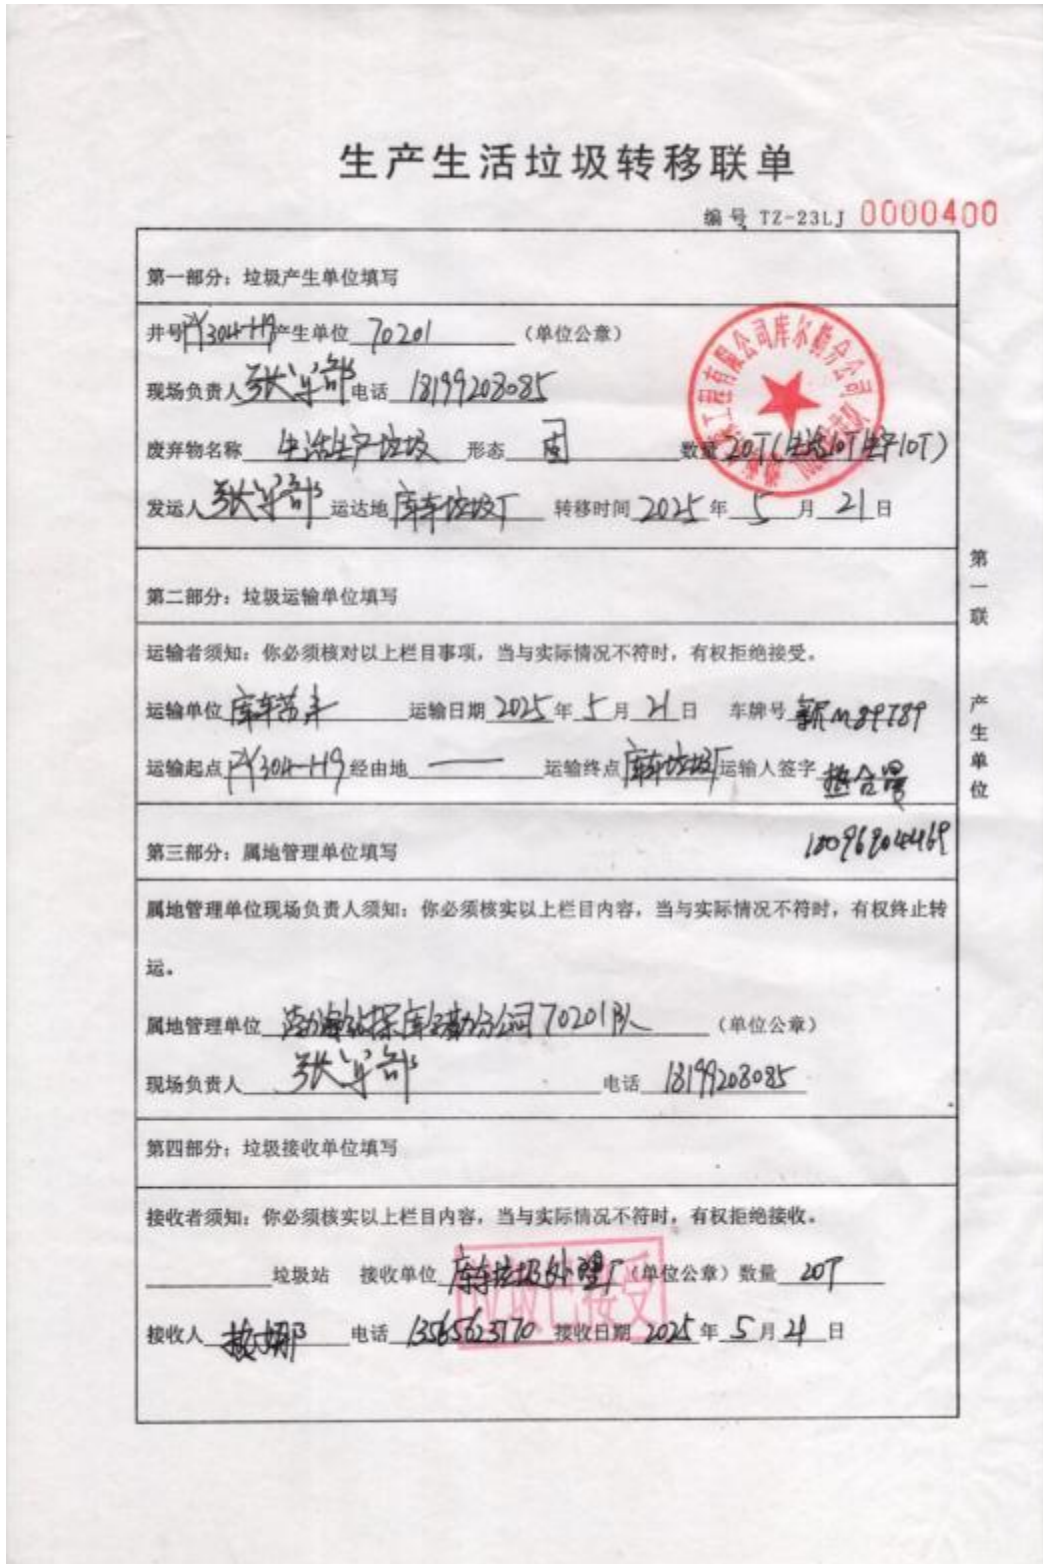 生产生活垃圾转移联单
编号 TZ-23LJ 0000400
第一部分：垃圾产生单位填写
井号 304-H9 产生单位 70201 （单位公章）
现场负责人 张 部 电话 18199208085
废弃物名称 生活生产垃圾 形态 固 数量 20T(生活10T生产10T)
发运人 张 部 运达地 库车垃圾厂 转移时间 2025 年 5 月 21 日
工程有限公司库尔勒分公司
第二部分：垃圾运输单位填写
运输者须知：你必须核对以上栏目事项，当与实际情况不符时，有权拒绝接受。
运输单位 库车 运输日期 2025 年 5 月 21 日 车牌号 新M89789
运输起点 304-H9 经由地 —— 运输终点 库车垃圾厂 运输人签字 热合曼
第三部分：属地管理单位填写
属地管理单位现场负责人须知：你必须核实以上栏目内容，当与实际情况不符时，有权终止转
运。
属地管理单位 渤海钻探库尔勒分公司70201队 （单位公章）
现场负责人 张 部 电话 18199208085
第四部分：垃圾接收单位填写
接收者须知：你必须核实以上栏目内容，当与实际情况不符时，有权拒绝接收。
垃圾站 接收单位 库车垃圾处理厂（单位公章）数量 20T
接收人 电话 13565623770 接收日期 2025 年 5 月 21 日
垃圾已接受
第一联 产生单位